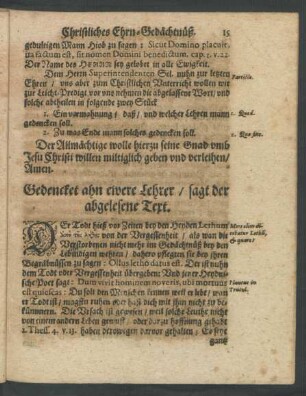 Christliches Ehrn-Gedächtnüß. 15
gedultigen Mann Hiob zu sagen: Sicut Domino placuit,
ita factum est, sit nomen Domini benedictum. cap. 1. v. 21.
Der Name des HErrn sey gelobet in alle Ewigkeit.
Dem Herrn Superintendenten Sel. nuhn zur letzten
Ehren / uns aber zum Christlichen Unterricht wollen wir
zur Leich-Predigt vor uns nehmen die abgelesene Wort, und
solche abtheilen in folgende zwey Stück
Partitio.
1. Ein vermahnung / daß / und welcher Lehrer man
gedencken soll.
1. Quod.
2. Zu was Ende man solchen gedencken soll.
2. Quo fine.
Der Allmächtige wolle hierzu seine Gnad umb
Jesu Christi willen miltiglich geben und verleihen /
Amen.
Gedencket ahn ewere Lehrer / sagt der
abgelesene Text.
DEr Todt hieß vor Zeiten bey den Heyden Lethum
von der Vergessenheit / als wan die
Verstorbenen nicht mehr im Gedächtnüß bey den
Lebendigen wehren / dahero pflegten sie bey ihren
Begräbnüssen zu sagen: Ollus letho datus est. Der ist nuhn
dem Todt oder Vergessenheit übergeben: Und jener Heydni-
sche Poet sagt: Dum vivit hominem noveris, ubi mortuus
est quiescas: Du solt den Menschen kennen weil er lebt / wan
er Todt ist / magstu ruhen und darfst dich wit ihm nicht zu be-
kümmern. Die Ursach ist gewesen / weil solche Leuthe nichts
von einem andern Leben gewust / oder darzu hoffnung gehabt
1. Thess. 4. v. 13. haben derowegen darvor gehalten: Es seye
gantz